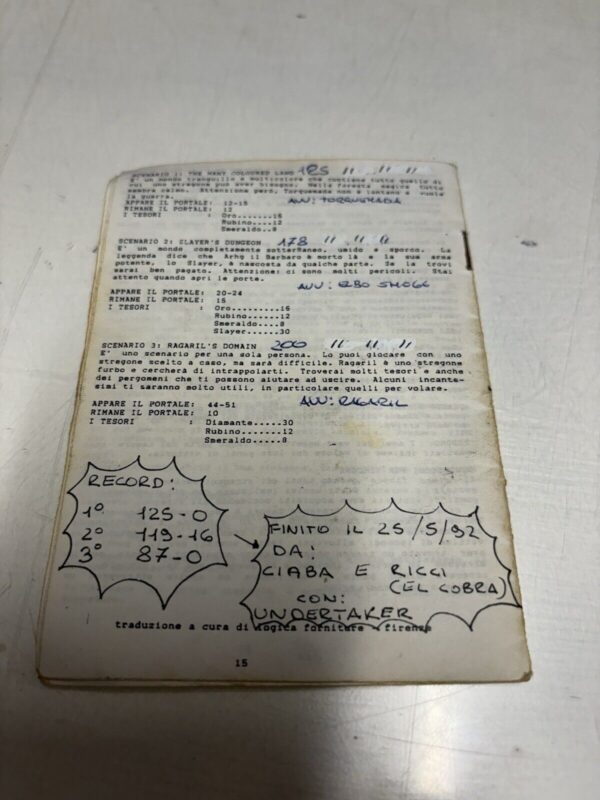 SCENARIO 1: THE MANY COLOURED LAND 125
E' un mondo tranquillo e multicolore che contiene tutto quello di
cui uno stregone può aver bisogno. Nella foresta
sempre calmo. Attenzione però, Torquemada non è lontano e vuole
la guerra.
AVV: TORQUEMADA
APPARE IL PORTALE: 12-15
RIMANE IL PORTALE: 12
I TESORI : Oro.......16
Rubino....12
Smeraldo..8
SCENARIO 2: SLAYER'S DUNGEON 178
E' un mondo completamente sotterraneo, umido e sporco. La
leggenda dice che Arhg il Barbaro è morto là e la sua arma
potente, lo Slayer, è nascosta da qualche parte. Se la trovi
sarai ben pagato. Attenzione: ci sono molti pericoli. Stai
attento quando apri le porte.
APPARE IL PORTALE: 20-24
RIMANE IL PORTALE: 15
I TESORI : Oro.......16
Rubino....12
Smeraldo..8
Slayer....30
SCENARIO 3: RAGARIL'S DOMAIN 200
E' uno scenario per una sola persona. Lo puoi giocare con uno
stregone scelto a caso, ma sarà difficile. Ragaril è uno stregone
furbo e cercherà di intrappolarti. Troverai molti tesori e anche
dei pergomeni che ti possono aiutare ad uscire. Alcuni incante-
simi ti saranno molto utili, in particolare quelli per volare.
AVV: RAGARIL
APPARE IL PORTALE: 44-51
RIMANE IL PORTALE: 10
I TESORI : Diamante.....30
Rubino.......12
Smeraldo.....8
RECORD:
1° 125-0
2° 119-16
3° 87-0
FINITO IL 25/5/92
DA:
CIABA E RICCI
(EL COBRA)
CON:
UNDERTAKER
traduzione a cura di logica forniture - firenze
15